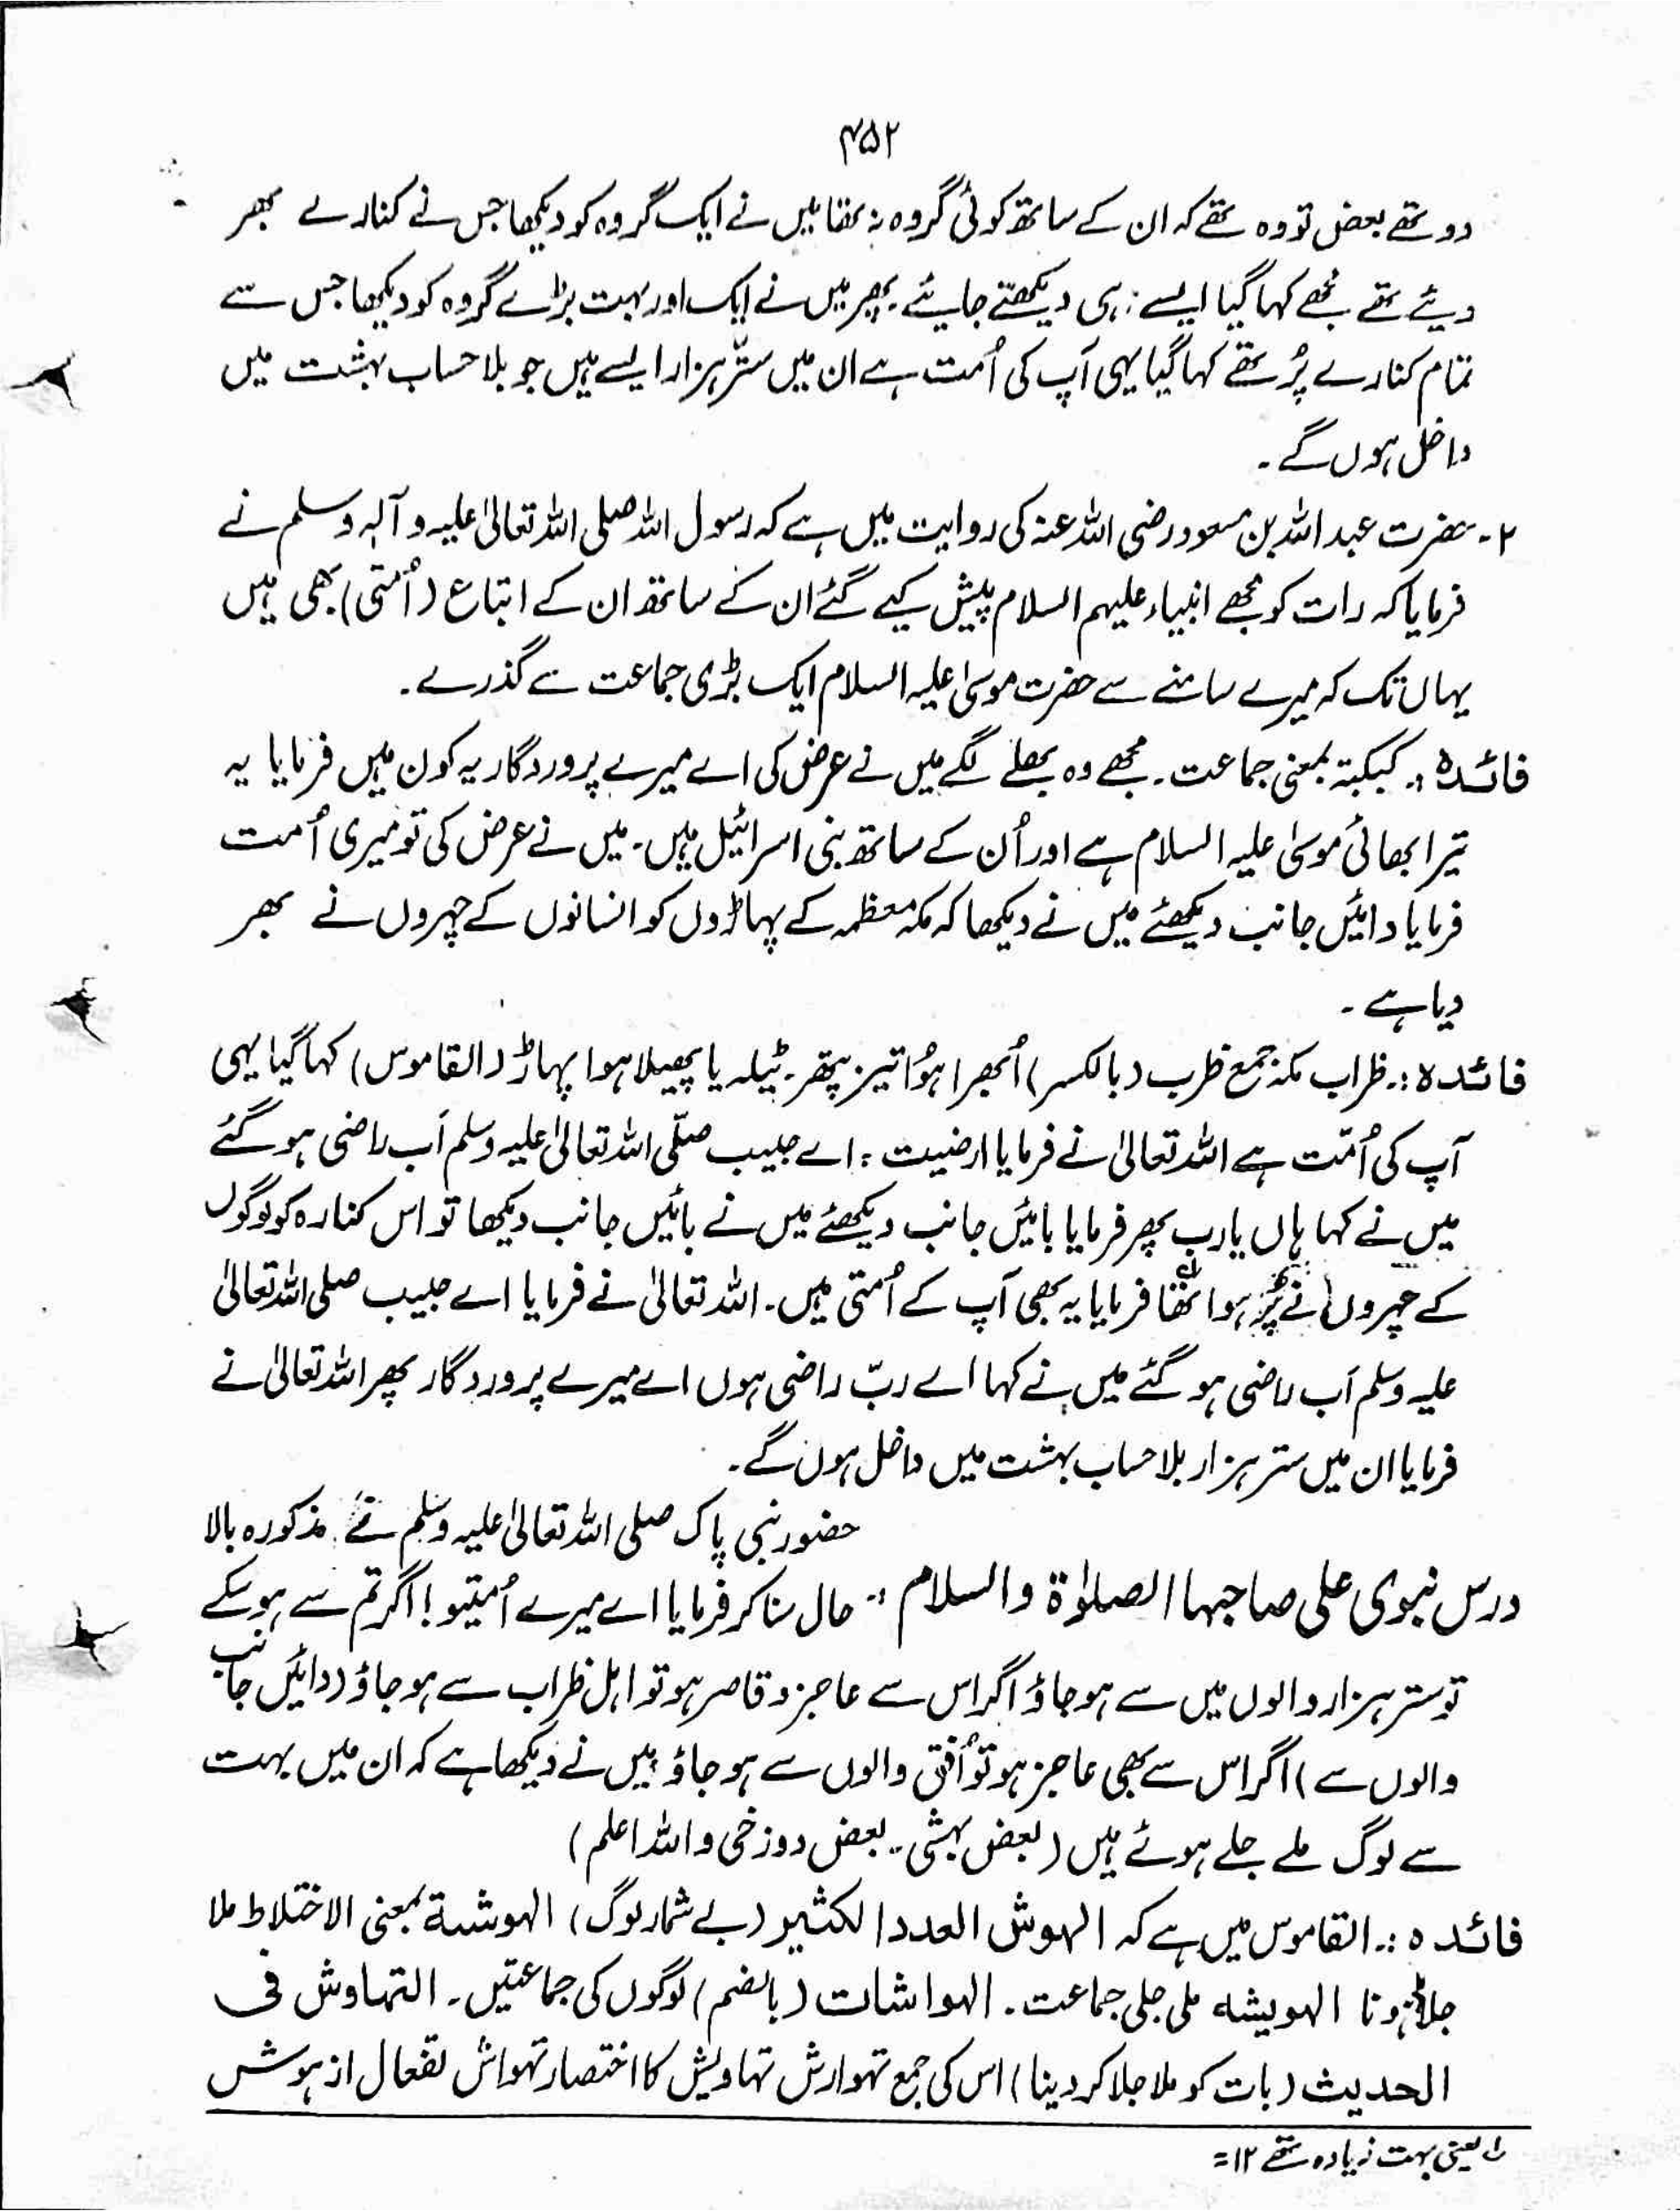 ۴۵۲
دو تھے بعض تو وہ تھے کہ ان کے ساتھ کوئی گروہ نہ تھا میں نے ایک گروہ کو دیکھا جس نے کنارے بھر
دیئے تھے مجھے کہا گیا ایسے ہی دیکھتے جایئے۔ پھر میں نے ایک اور بہت بڑے گروہ کو دیکھا جس سے
تمام کنارے پُر تھے کہا گیا یہی آپ کی اُمت ہے ان میں ستّر ہزار ایسے ہیں جو بلا حساب بہشت میں
داخل ہوں گے۔
۲۔ حضرت عبد اللہ بن مسعود رضی اللہ عنہ کی روایت میں ہے کہ رسول اللہ صلی اللہ تعالیٰ علیہ و آلہٖ وسلم نے
فرمایا کہ رات کو مجھے انبیاء علیہم السلام پیش کیے گئے ان کے ساتھ ان کے اتباع (اُمتی) بھی ہیں
یہاں تک کہ میرے سامنے سے حضرت موسیٰ علیہ السلام ایک بڑی جماعت سے گذرے۔
فائدہ :۔ کبکبۃ بمعنی جماعت۔ مجھے وہ بھلے لگے میں نے عرض کی اے میرے پروردگار یہ کون ہیں فرمایا یہ
تیرا بھائی موسیٰ علیہ السلام ہے اور اُن کے ساتھ بنی اسرائیل ہیں۔ میں نے عرض کی تو میری اُمت
فرمایا دائیں جانب دیکھئے میں نے دیکھا کہ مکہ معظمہ کے پہاڑوں کو انسانوں کے چہروں نے بھر
دیا ہے۔
فائدہ :۔ ظراب مکہ جمع ظرب (بالکسر) اُبھرا ہوُا تیز پتھر۔ ٹیلہ یا پھیلا ہوا پہاڑ (القاموس) کہا گیا یہی
آپ کی اُمّت ہے اللہ تعالیٰ نے فرمایا ارضیت : اے حبیب صلّی اللہ تعالیٰ علیہ وسلم آپ راضی ہو گئے
میں نے کہا ہاں یارب پھر فرمایا بائیں جانب دیکھئے میں نے بائیں جانب دیکھا تو اس کنارہ کو لوگوں
کے چہروں نے پُر ہوا تھا فرمایا یہ بھی آپ کے اُمتی ہیں۔ اللہ تعالیٰ نے فرمایا اے حبیب صلی اللہ تعالیٰ
علیہ وسلم آپ راضی ہو گئے میں نے کہا اے ربّ راضی ہوں اے میرے پروردگار پھر اللہ تعالیٰ نے
فرمایا ان میں ستر ہزار بلا حساب بہشت میں داخل ہوں گے۔
حضور نبی پاک صلی اللہ تعالیٰ علیہ وسلم نے مذکورہ بالا
درس نبوی علی صاحبہا الصلوٰۃ والسلام :۔ حال سنا کر فرمایا اے میرے اُمتیو! اگر تم سے ہو سکے
تو ستر ہزار والوں میں سے ہو جاؤ اگر اس سے عاجز و قاصر ہو تو اہل ظراب سے ہو جاؤ (دائیں جانب
والوں سے) اگر اس سے بھی عاجز ہو تو اُفق والوں سے ہو جاؤ میں نے دیکھا ہے کہ ان میں بہت
سے لوگ ملے جلے ہوئے ہیں (بعض بہشتی۔ بعض دوزخی واللہ اعلم)
فائدہ :۔ القاموس میں ہے کہ الہوش العدد الکثیر (بے شمار لوگ) الہوشۃ بمعنی الاختلاط ملا
جلا ہونا الہویشہ ملی جلی جماعت۔ الہواشات (بالضم) لوگوں کی جماعتیں۔ التہاوش فی
الحدیث (بات کو ملا جلا کر دینا) اس کی جمع تہوارش تہاویش کا اختصار تہواش تفعال از ہوش
ے یعنی بہت زیادہ تھے ۱۲=